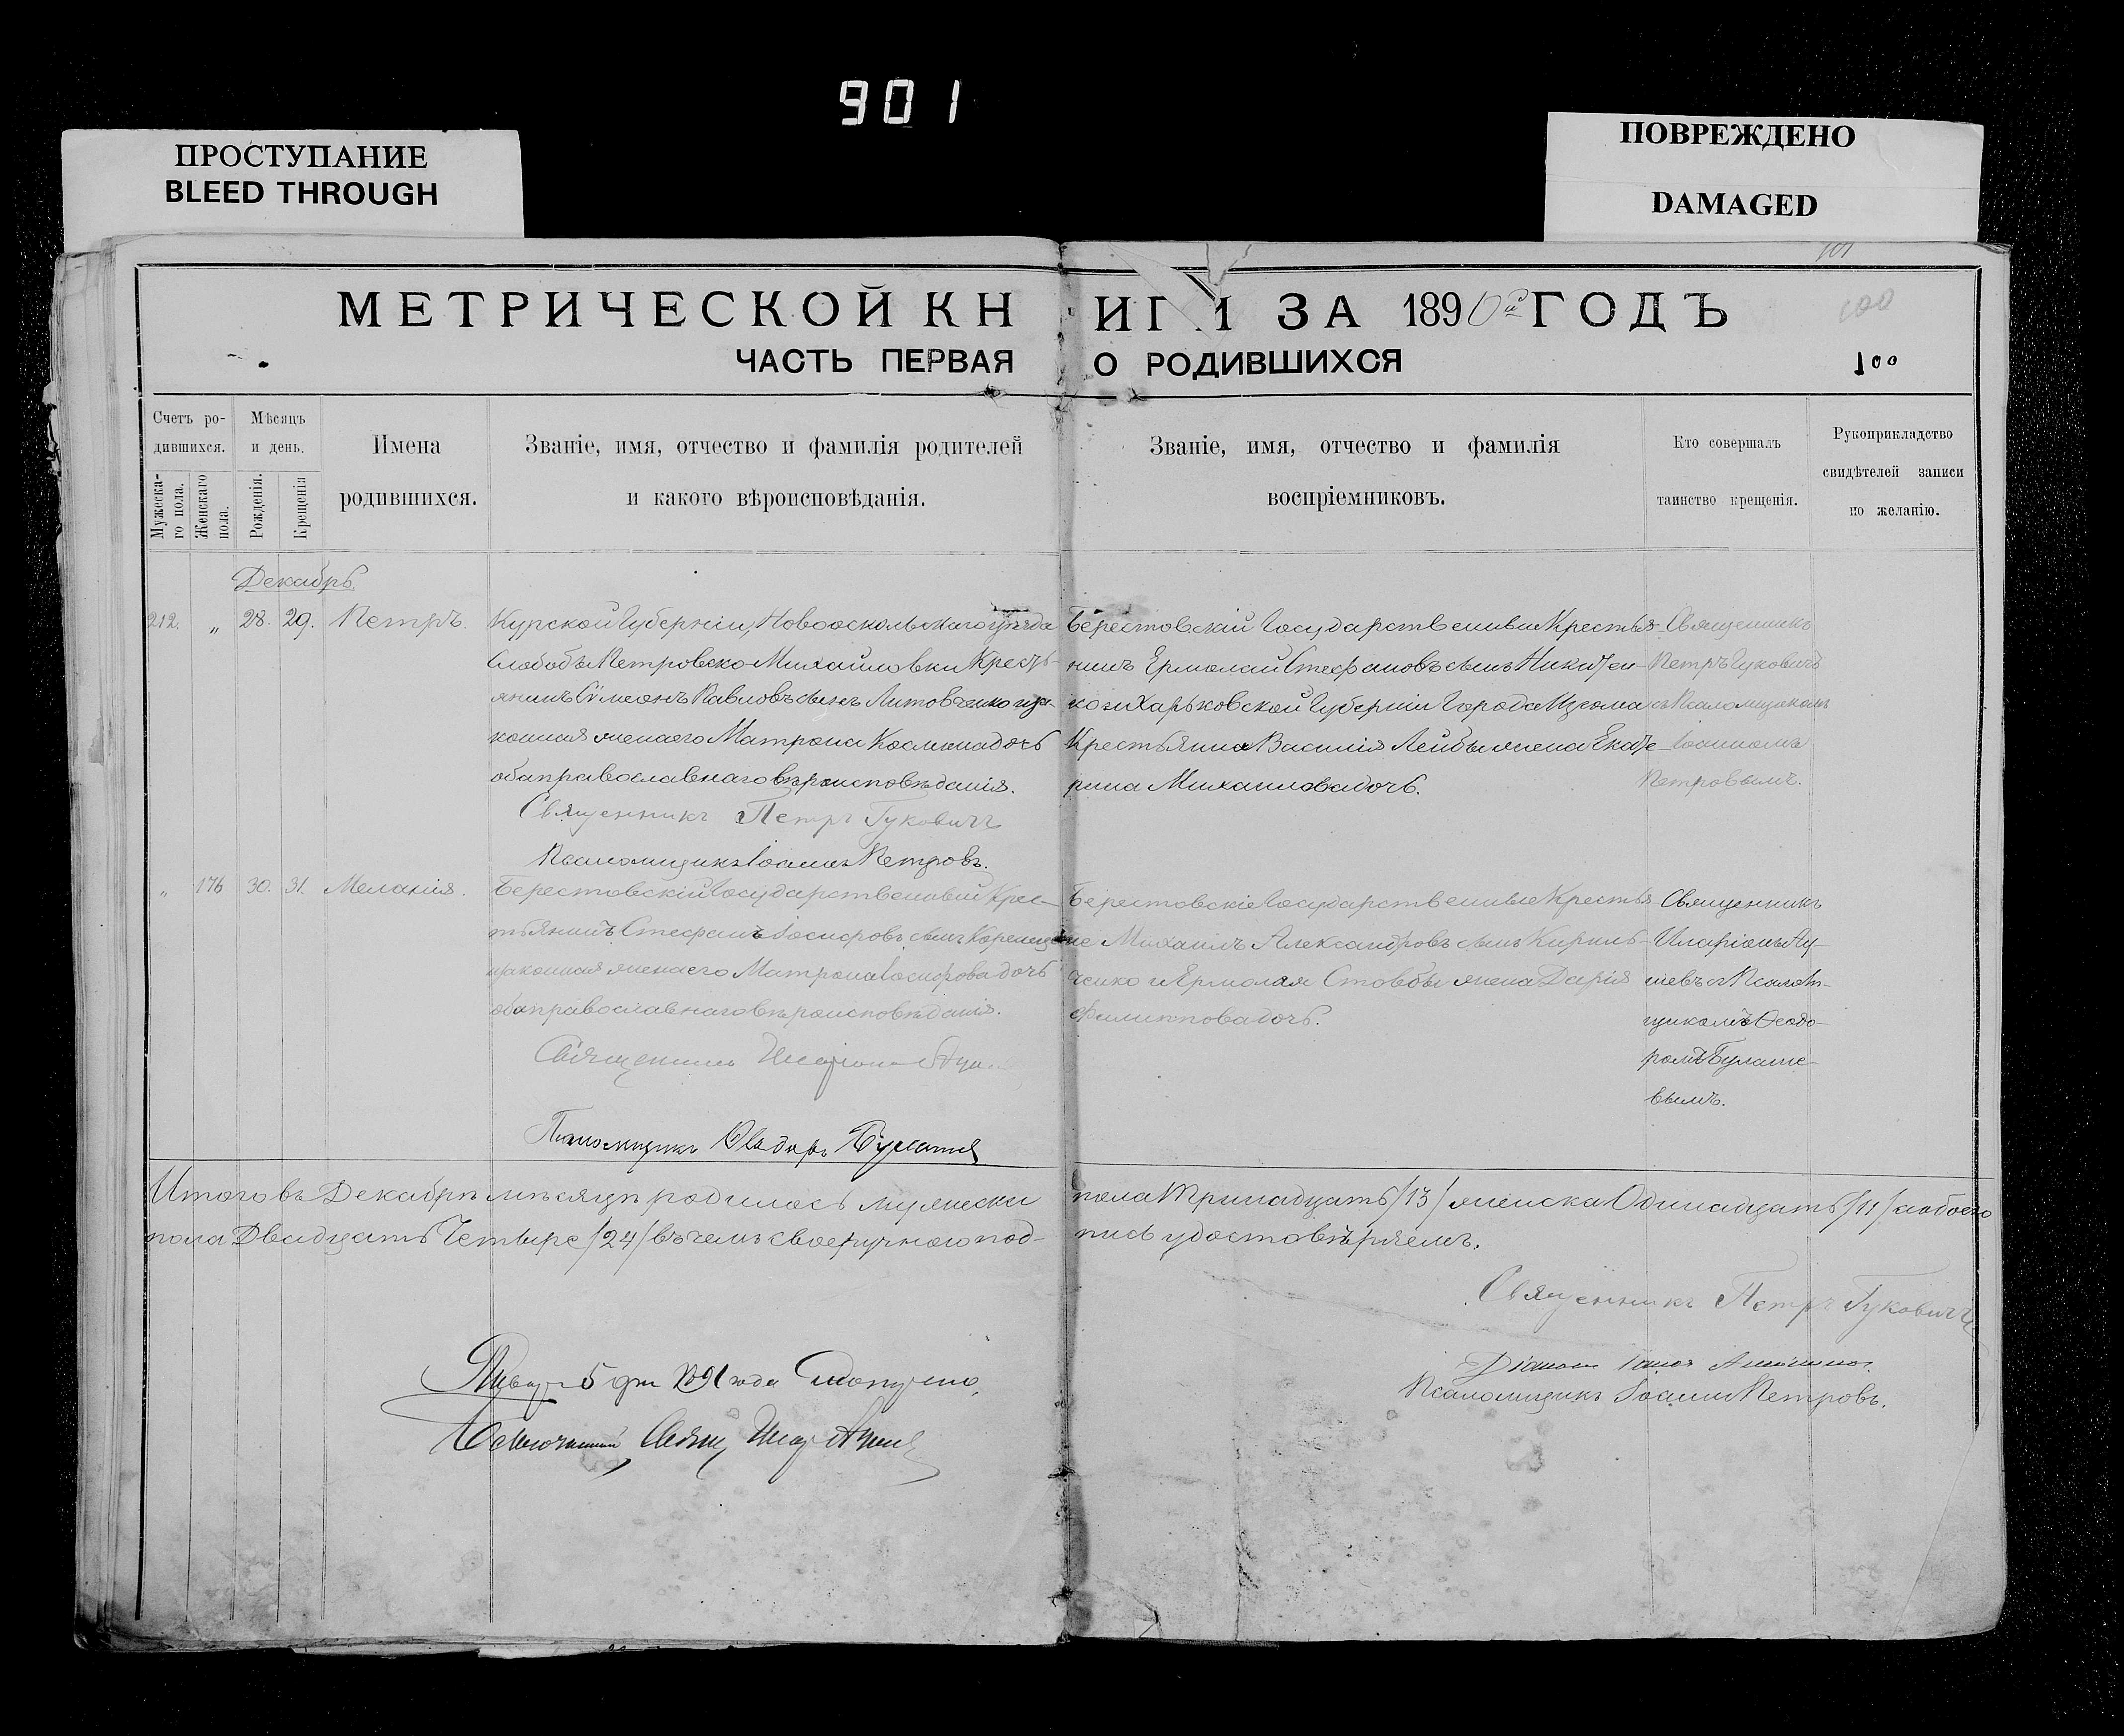 901
ПРОСТУПАНИЕ
BLEED THROUGH
ПОВРЕЖДЕНО
DAMAGED
101
МЕТРИЧЕСКОЙ КНИГИ ЗА 1890й ГОДЪ
100
ЧАСТЬ ПЕРВАЯ О РОДИВШИХСЯ
100
Счетъ ро-
дившихся.
Мужеска-
го пола.
Женскаго
пола.
Мѣсяцъ
и день.
Рожденія.
Крещенія
Имена
родившихся.
Званіе, имя, отчество и фамилія родителей
и какого вѣроисповѣданія.
Званіе, имя, отчество и фамилія
воспріемниковъ.
Кто совершалъ
таинство крещенія.
Рукоприкладство
свидѣтелей записи
по желанію.
Декабрь.
212. „ 28. 29. Петръ.
Курской Губерніи, Новооскольскаго уѣзда
Слободы Петровско-Михайловки Кресть-
янинъ Сѵмеонъ Павловъ сынъ Литовченко и за-
конная жена его Матрона Космина дочь
оба православнаго вѣроисповѣданія.
Священникъ Петръ Гуковичъ
Псаломщикъ Іоаннъ Петровъ.
Берестовскій Государственный Крестья-
нинъ Ермолай Стефановъ сынъ Никитен-
ко и Харьковской Губерніи Города Изюма
Крестьянина Василія Лейбы жена Екате-
рина Михаилова дочь.
Священникъ
Петръ Гуковичъ
съ Псаломщикомъ
Іоанномъ
Петровымъ.
„ 176 30. 31. Меланія.
Берестовскій Государственный Крес-
тьянинъ Стефанъ Іосифовъ сынъ
законная жена его Матрона Іосифова дочь
оба православнаго вѣроисповѣданія.
Священникъ Иларіонъ
Псаломщикъ Ѳеодоръ
Берестовскіе Государственные Крестья-
не Михаилъ Александровъ сынъ Кирил-
ченко и Ермолая Стовбы жена Дарія
Филиппова дочь.
Священникъ
Иларіонъ
шевъ съ Псалом-
щикомъ Ѳеодо-
ромъ Булаше-
вымъ.
Итого въ Декабрѣ мѣсяцѣ родилось мужеска пола Тринадцать /13/ женска Одинадцать /11/ а обоего
пола Двадцать Четыре /24/ въ чемъ своеручною под- пись удостовѣряемъ.
Священникъ Петръ Гуковичъ
Діаконъ
Псаломщикъ Іоаннъ Петровъ.
Январ 5 дня 1891 года
Свящ